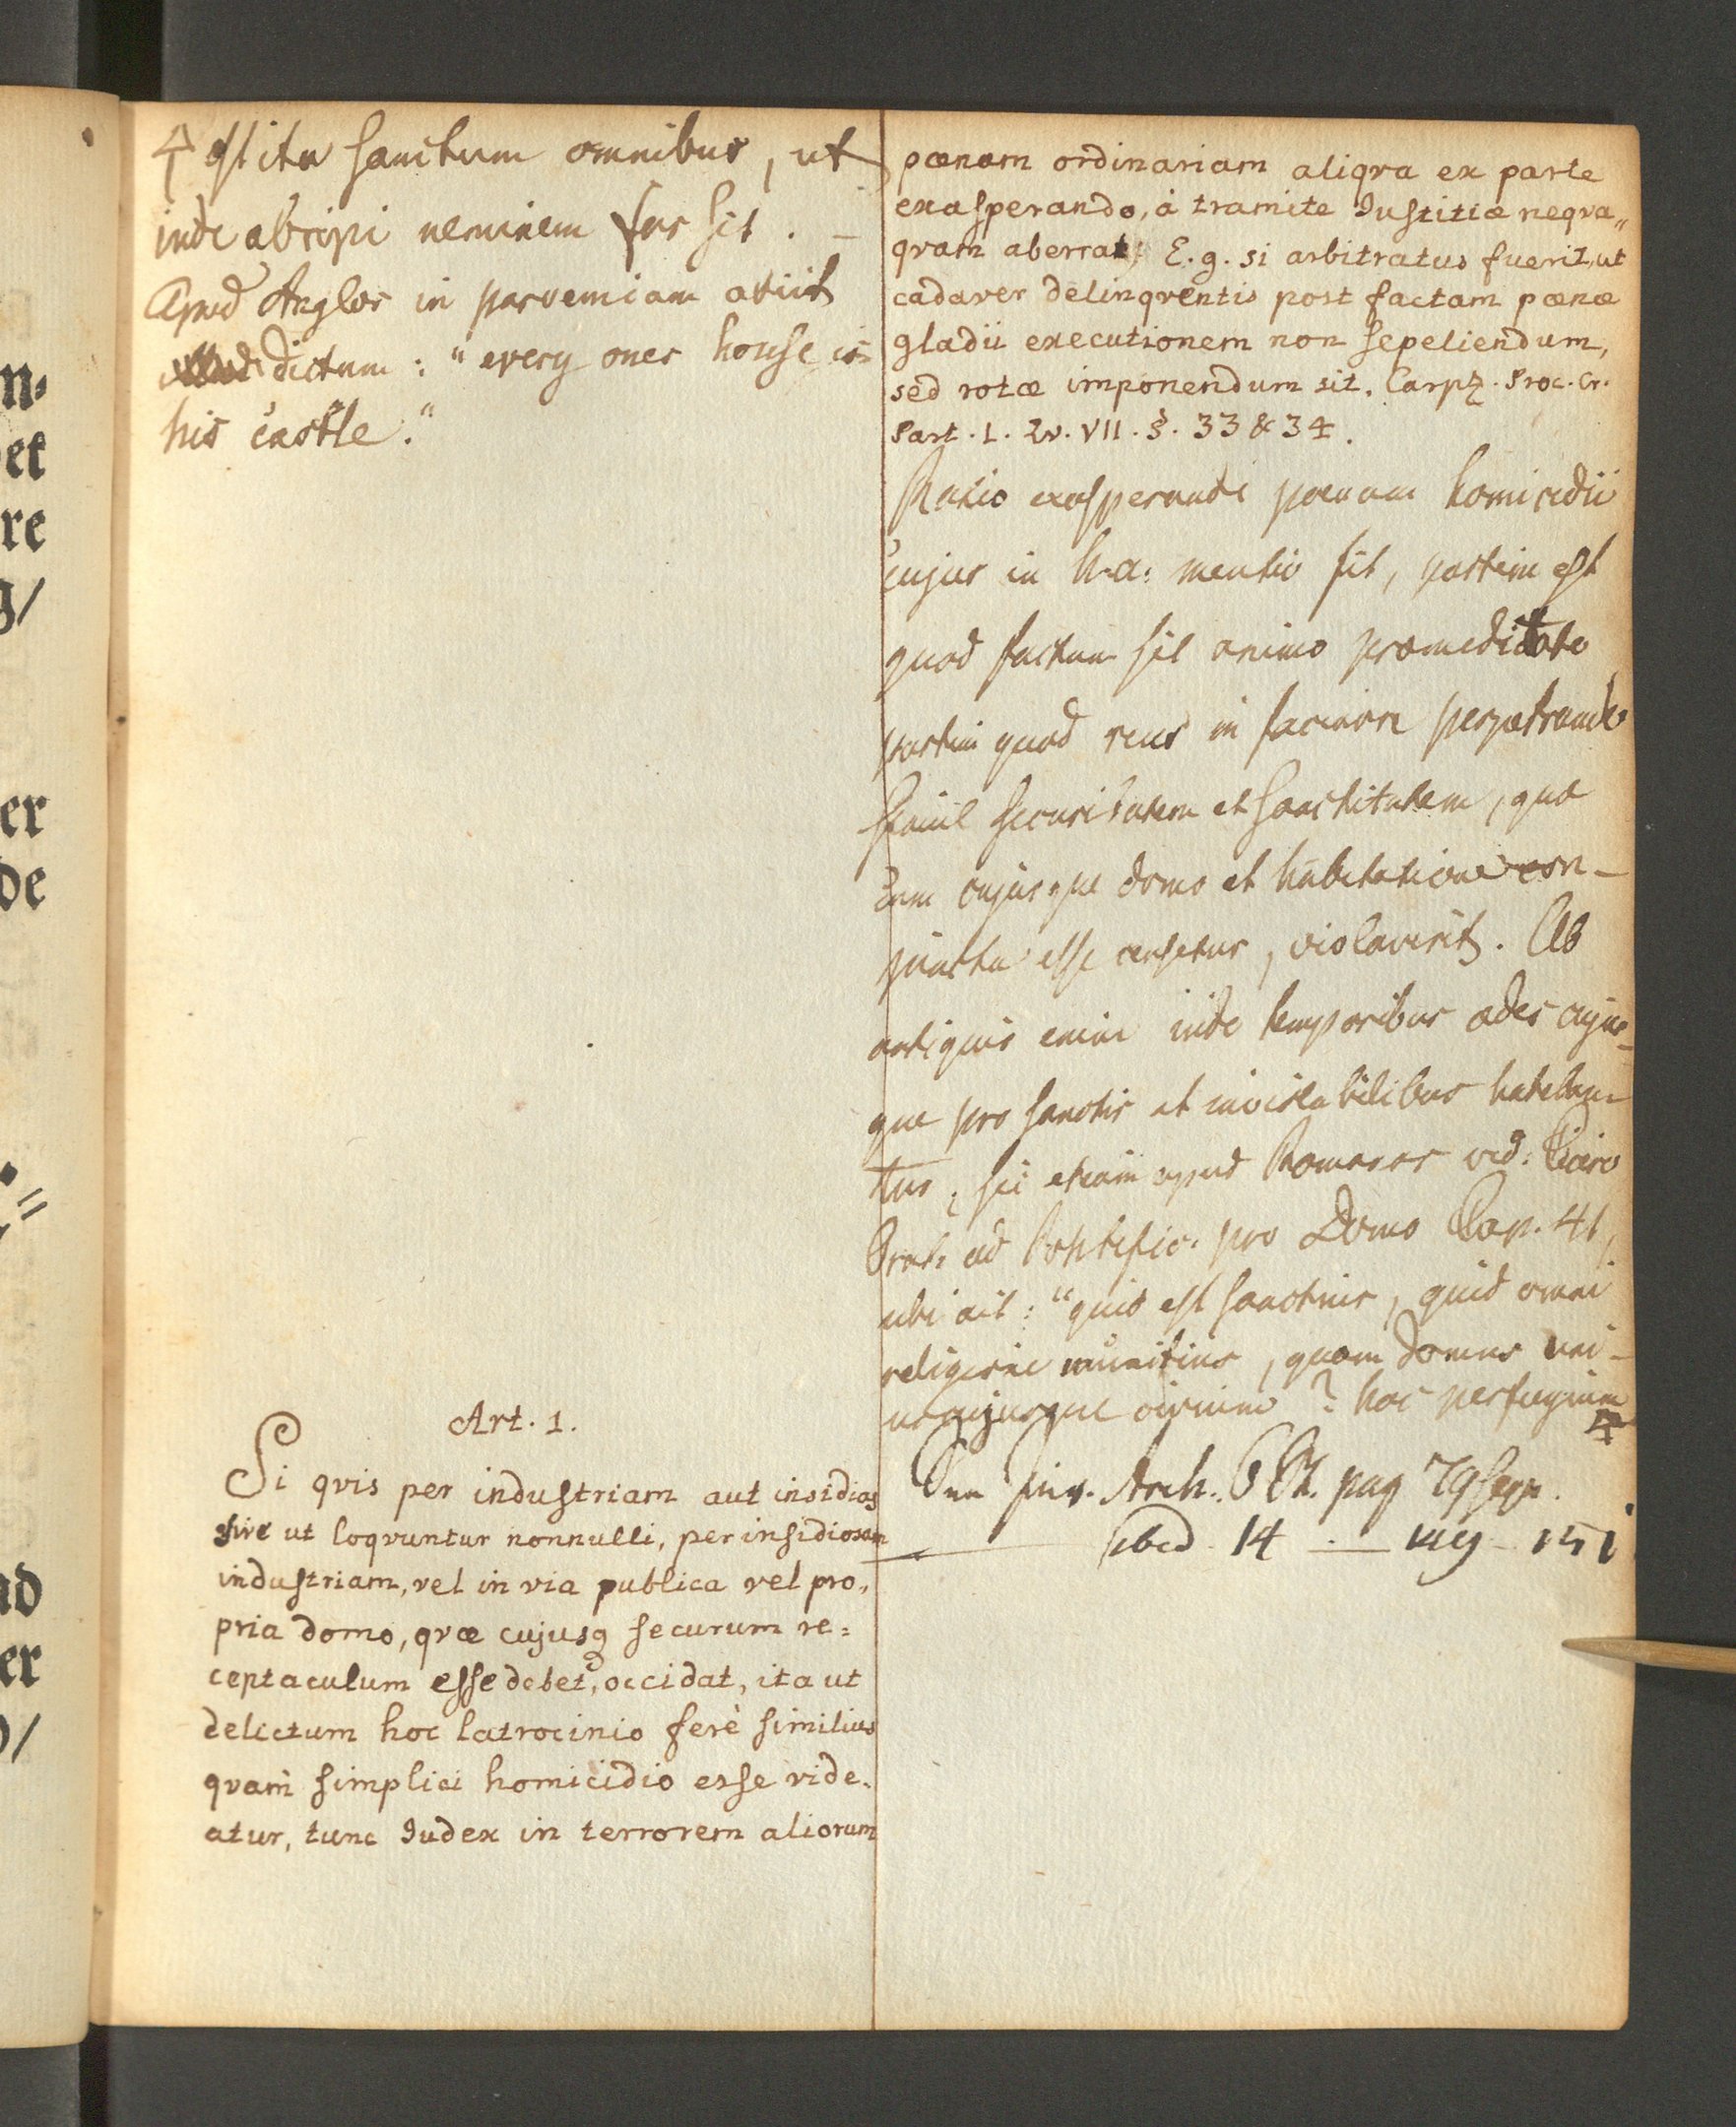 ♃ est ita sanctum omnibus, ut
inde abripi neminem fas sit. –
Apud Anglos in paroemiam abiit
illud dictum: "every ones house is
his castle."
Art. 1.
Si qvis per industriam aut insidias
sive ut loqvuntur nonnulli, per insidiosam
industriam, vel in via publica vel pro„
pria domo, qvæ cujusq securum re=
ceptaculum esse debet, occidat, ita ut
delictum hoc latrocinio ferè similius
qvam simplici homicidio esse vide„
atur, tunc Judex in terrorem aliorum
pœnam ordinariam aliqva ex parte
exasperando, à tramite Justitiæ neqva„
qvam aberrat; E. g. si arbitratus fuerit, ut
cadaver delinqventis post factam pœnæ
gladii executionem non sepeliendum,
sed rotæ imponendum sit. Carpz. Proc. Cr.
Part. 1. Qv. VII. §. 33 & 34.
Ratio exasperandi poenam homicidii
cujus in h. a. mentio fit, partim est
quod factum sit animo præmeditato
partim quod reus in facinore perpetrando
simul securitatem et sanctitatem, quæ
cum cujusque domo et habitatione con–
juncta esse censetur, violaverit. Ab
antiquis enim inde temporibus ædes cujus–
que pro sanctis et inviolabilibus hateban–
tur, sic etiam apud Romanos vid. Cicero
Orat. ad Pontific. pro Domo Cap. 41,
ubi ait: "quid est sanctius, quid omni
religione munitius, quam domus uni–
uscujusque civium? hoc perfugium
♃
Jur. Arch. pag 79 seqv.
ibid 14 — 149 – 151